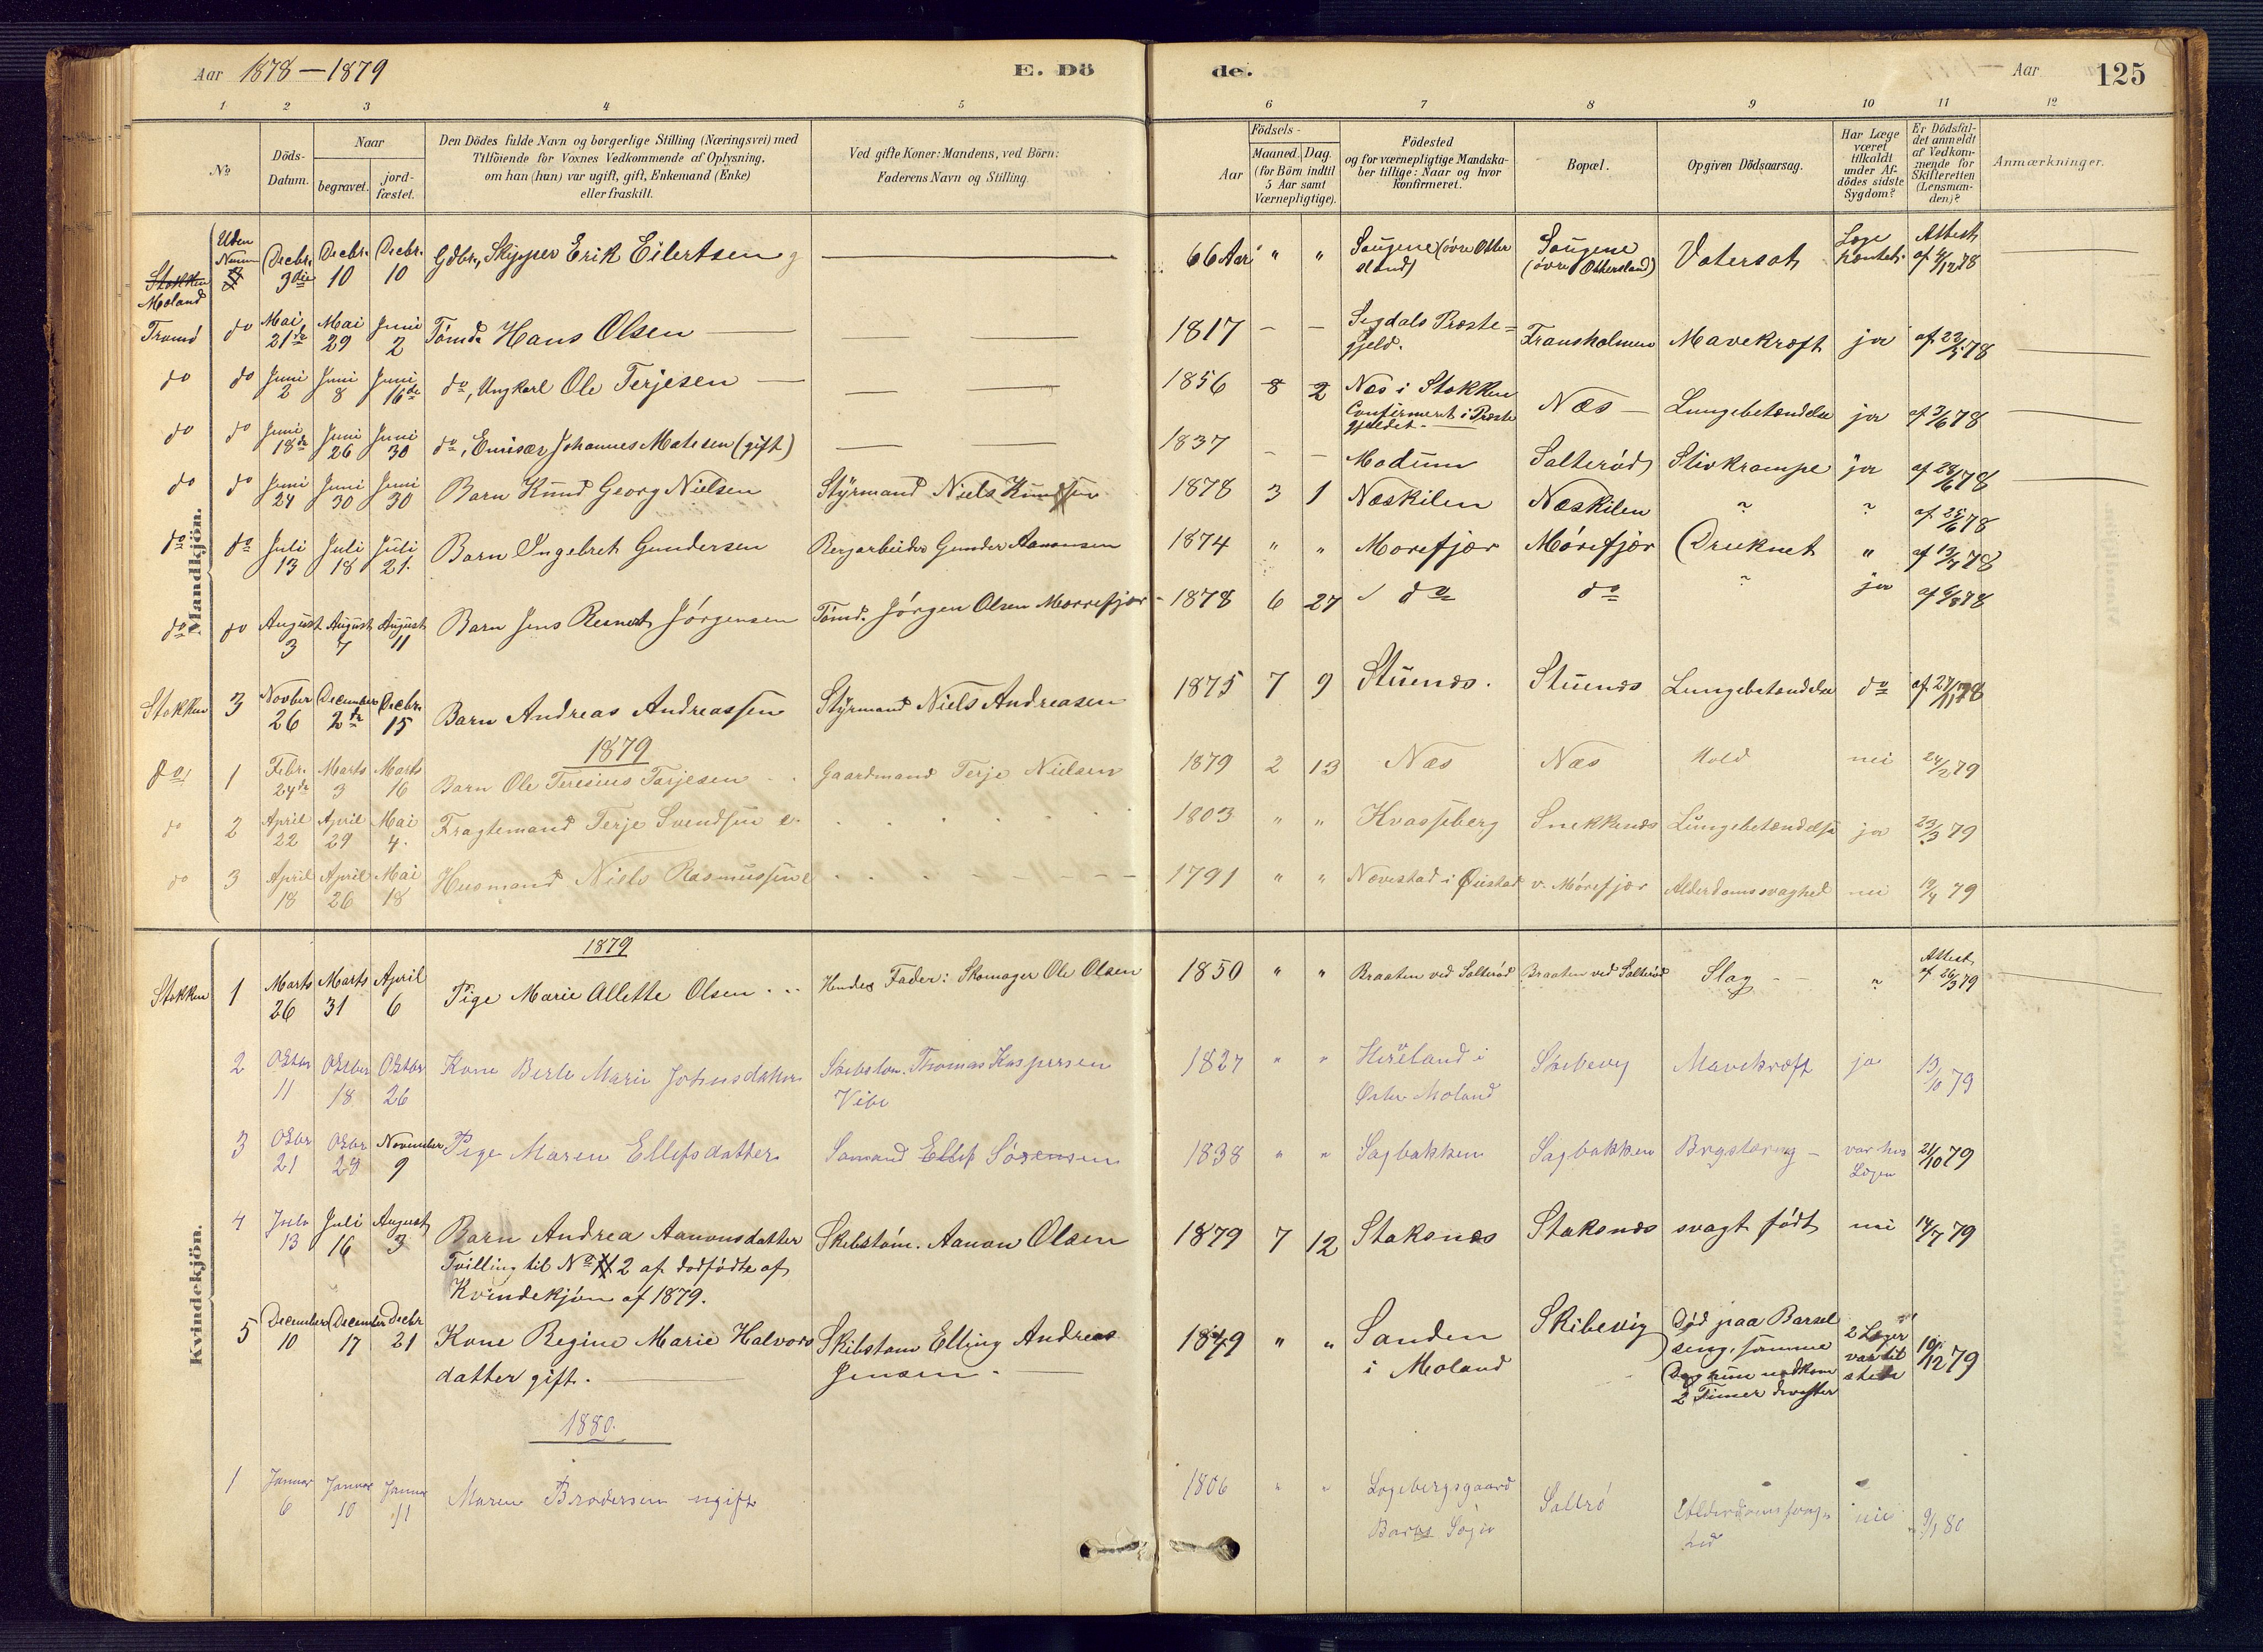 Aar 1878-1879
E. Dö
de.
Aar
125
1 2 3 4 5 6 7 8 9 10 11 12
No
Döds-Datum.
Naar
begravet.
jord-fæstet.
Den Dödes fulde Navn og borgerlige Stilling (Næringsvei) med
Tilföiende for Voxnes Vedkommende af Oplysning,
om han (hun) var ugift, gift, Enkemand (Enke)
eller fraskilt.
Ved gifte Koner: Mandens, ved Börn:
Faderens Navn og Stilling.
Födsels-
Aar
Maaned. Dag.
(for Börn indtil
5 Aar samt
Værnepligtige).
Födested
og for værnepligtige Mandska-
ber tillige: Naar og hvor
Konfirmeret.
Bopæl.
Opgiven Dödsaarsag.
Har Læge
været
tilkaldt
under Af-
dödes sidste
Sygdom?
Er Dödsfal-
det anmeldt
af Vedkom-
mende for
Skifteretten
(Lensman-
den)?
Anmærkninger.
Mandkjön.
Stokken Moland Uden Num Decbr. 3die Decbr. 10 Decbr. 10 Gdbr., Skipper Erik Eilertsen g 66 Aar " " Saugene (övre Otterstand) Saugene (övre Ottersland) Vatersot Læge Attest af 4/12 78
Tromö do Mai 21de Mai 29 Juni 2 Tömd. Hans Olsen 1817 - - Sigdals Præstegjeld. Fransholmen Mavekræft ja af 22/5 78
do do Juni 2 Juni 8 Juni 16de do, Ungkarl Ole Terjesen 1856 8 2 Næs i Stokken Confirmeret i Præstegjeldet. Næs Lungebetændelse ja af 3/6 78
do do Juni 18de Juni 26 Juni 30 do, Emisær Johannes Matesen (gift) 1837 - - Modum Salteröd Stivkrampe ja af 28/6 78
do do Juni 24 Juni 30 Juni 30 Barn Knud Georg Nielsen Styrmand Niels Knudsen 1878 3 1 Næskilen Næskilen " " af 25/6 78
do do Juli 13 Juli 18 Juli 21. Barn Ingebret Gundersen Bergarbeider Gunder Aanonsen 1874 " " Morefjær Mörefjær Druknet " af 13/7 78
do do August 3 August 7 August 11 Barn Jens Reinert Jörgensen Tömd. Jörgen Olsen Morrefjær 1878 6 27 do do " ja af 6/8 78
Stokken 3 Novber 26 December 2de Decbr. 15 Barn Andreas Andreassen Styrmand Niels Andreasen 1875 7 9 Stuenæs. Stuenæs Lungebetændelse do af 27/11 78
1879
do 1 Febr. 24de Marts 3 Marts 16 Barn Ole Teresius Tarjesen Gaardmand Terje Nielsen 1879 2 13 Næs Næs Hold nei 24/2 79
do 2 April 22 April 29 Mai 4. Fragtemand Terje Svendsen e. 1803 " " Kvasseberg Snekkenæs Lungebetændelse ja 23/3 79
do 3 April 18 April 26 Mai 18 Husmand Niels Rasmussen e 1791 " " Nævestad i Øiestad v. Mörefjær Alderdomssvaghed nei 19/4 79
Kvindekjön.
1879
Stokken 1 Marts 26 Marts 31 April 6 Pige Marie Allette Olsen Hendes Fader: Skomager Ole Olsen 1850 " " Braaten ved Salteröd Braaten ved Salteröd Slag " Attest af 26/3 79
2 Oktbr 11 Oktber 18 Oktbr 26 Kone Berte Marie Johnsdatter Skibstöm. Thomas Kaspersen Vibe 1827 " " Heireland i Øster Moland Skibevig Mavekræft ja 13/10 79
3 Oktbr 21 Oktbr 29 November 9 Pige Maren Ellefsdatter Sömand Ellef Sörensen 1838 " " Sagbakken Sagbakken Brystsyg var hos Lægen 21/10 79
4 Juli 13 Juli 16 August 3 Barn Andrea Aanonsdatter Skibstöm. Aanon Olsen 1879 7 12 Staksnes Staksnæs svagt födt nei 14/7 79
Tvilling til No 2 af dødfødte af
Kvindekjön af 1879.
5 December 10 December 17 Decbr 21 Kone Regine Marie Halvors Skibstöm Elling Andreas 1849 " " Sanden i Moland Skibevig Död paa Barsel
datter gift. Jensen. seng, samme Dag hun nedkom 2 Timer derefter 2 Læger var tilstede 10/12 79
1880.
1 Januar 6 Januar 10 Januar 11 Maren Brodersen ugift 1806 " " Longebergsgaard Barbo Sogn Saltrö Alderdomssvaghed nei 9/1 80